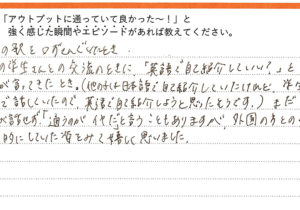 「アウトプットに通っていて良かった～！」と
強く感じた瞬間やエピソードがあれば教えてください。
の駅をつぎんでいたとき。
の学生さんとの交流のときに、「英語で自己紹介していい？」と
が言ってきたとき。(他の子は日本語で自己紹介していたけれど、学生
で話していたので、英語で自己紹介しようと思ったそうです。) まだ
が話せず「通うのがイヤだ」と言うこともありますが、外国の方との
的にしている姿をみて嬉しく思いました。